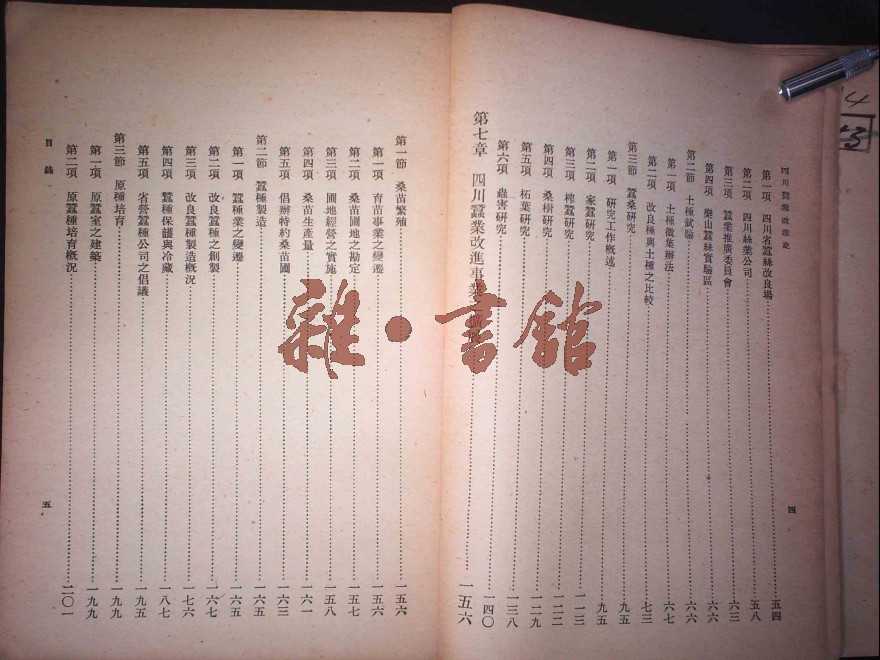 四川蠶業改進史
第一項 四川省蠶絲改良場 五四
第二項 四川絲業公司 五八
第三項 蠶業推廣委員會 六三
第四項 樂山蠶絲實驗區 六六
第二節 土種試驗 六六
第一項 土種徵集辦法 六七
第二項 改良種與土種之比較 七三
第三節 蠶桑研究 九五
第一項 研究工作概述 九五
第二項 家蠶研究 一一三
第三項 柞蠶研究 一二九
第四項 桑樹研究 一二九
第五項 柘葉研究 一三八
第六項 蟲害研究 一四〇
第七章 四川蠶業改進事業 一五六
四
第一節 桑苗繁殖 一五六
第一項 育苗事業之變遷 一五六
第二項 桑苗圃地之勘定 一五七
第三項 圃地經營之實施 一五八
第四項 桑苗生產量 一六一
第五項 倡辦特約桑苗圃 一六三
第二節 蠶種製造 一六五
第一項 蠶種業之變遷 一六五
第二項 改良蠶種之創製 一六七
第三項 改良蠶種製造概況 一七六
第四項 蠶種保護與冷藏 一八七
第五項 省營蠶種公司之倡議 一九五
第三節 原種培育 一九九
第一項 原蠶室之建築 一九九
第二項 原蠶種培育概況 二〇一
目錄
五
雜·書館